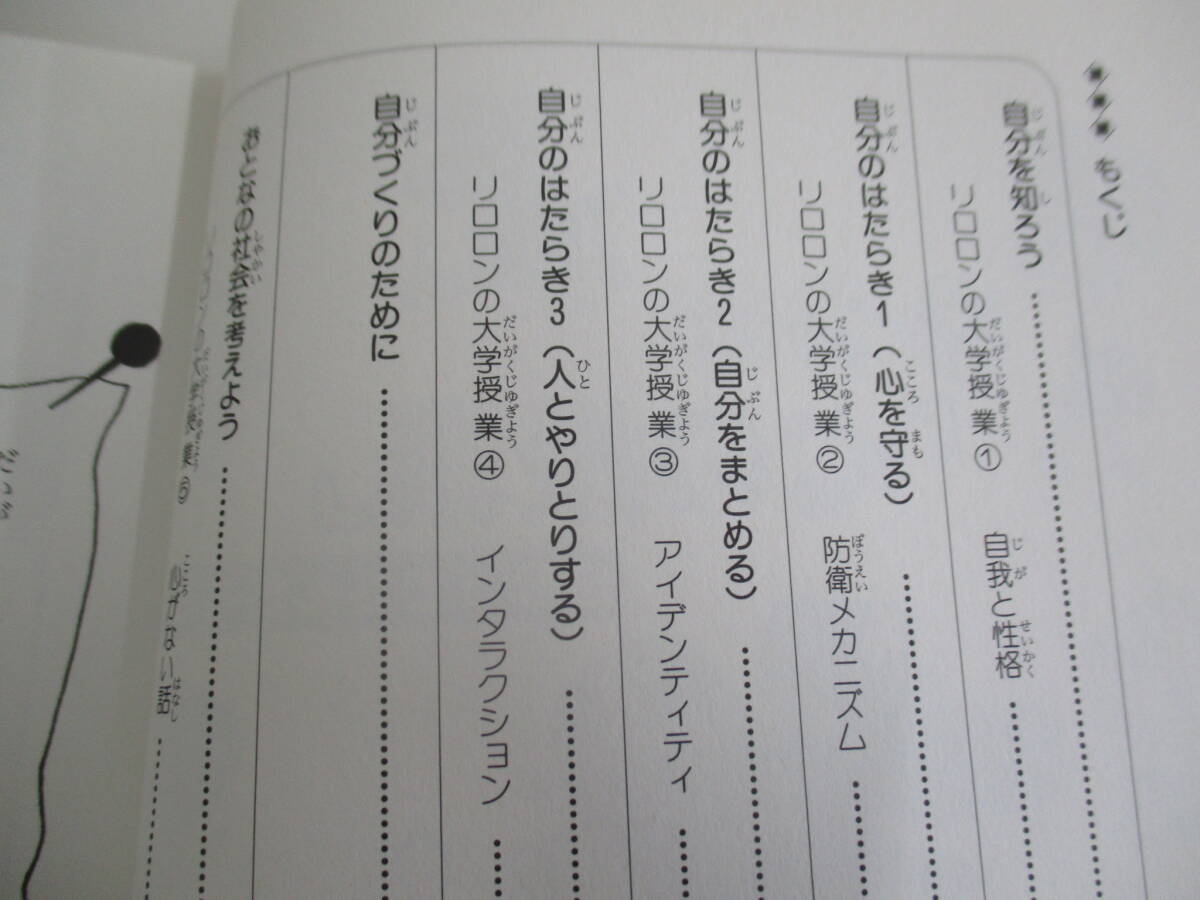 もくじ
自分を知ろう
リロロンの大学授業① 自我と性格
自分のはたらき1（心を守る）
リロロンの大学授業② 防衛メカニズム
自分のはたらき2（自分をまとめる）
リロロンの大学授業③ アイデンティティ
自分のはたらき3（人とやりとりする）
リロロンの大学授業④ インタラクション
自分づくりのために
おとなの社会を考えよう
心がない話